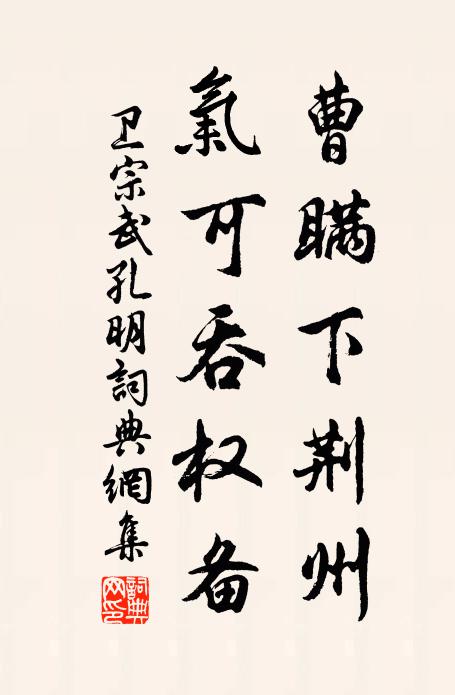 曹瞞下荆州
氣可吞权备
卫宗武孔明詞典網集
詞典网印